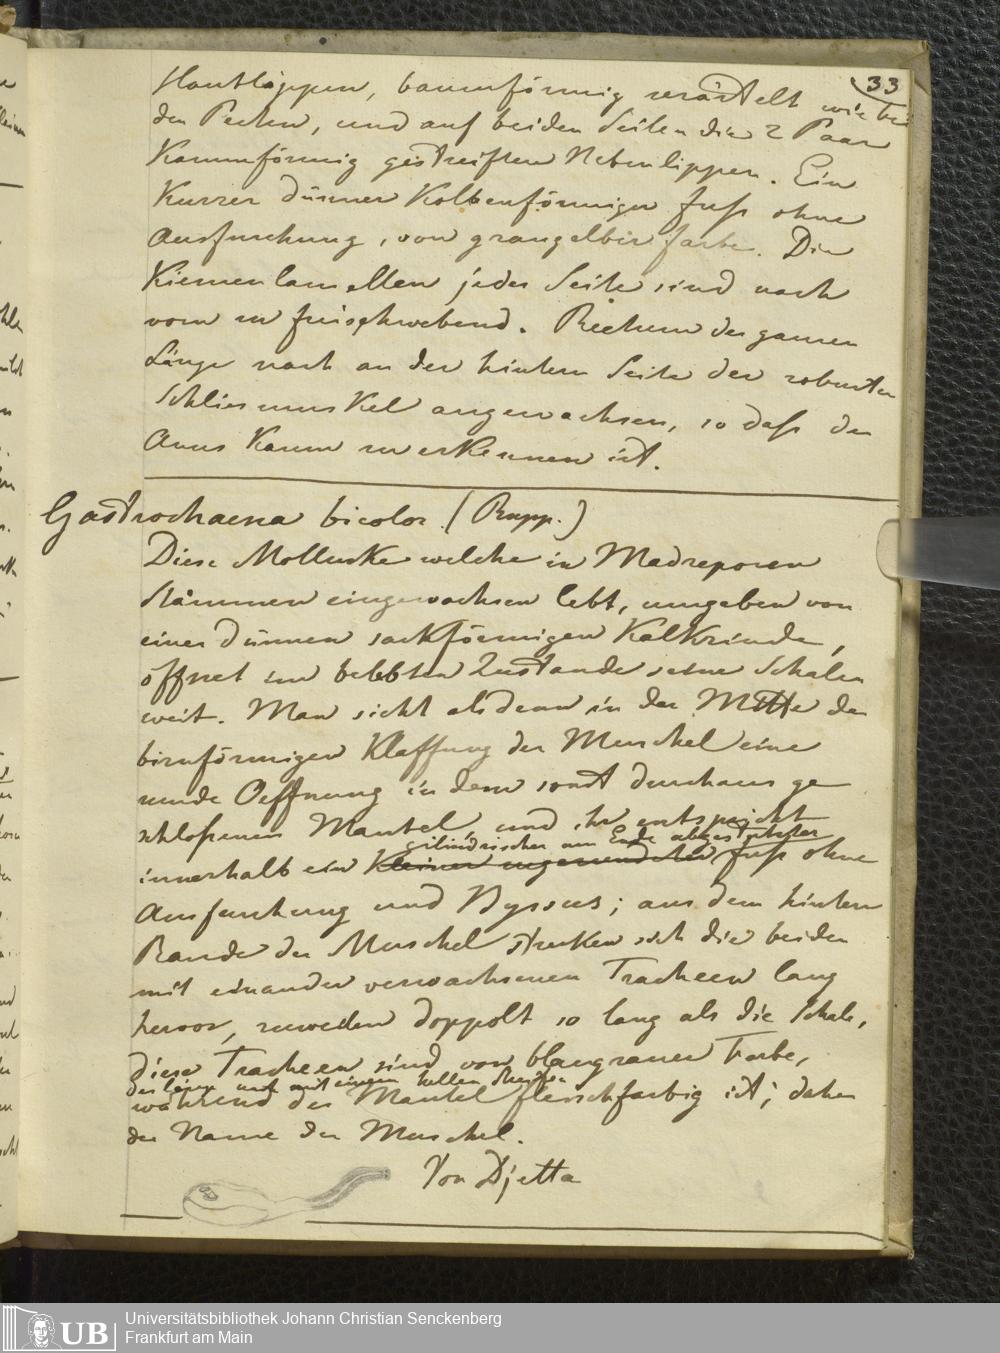 33
Hautlappen, baumförmig verästelt wie bei
den Pecten, und auf beiden Seiten die 2 Paar
Kammförmig gestreiften Nebenlippen. Ein
Kurzer dünner Kolbenförmiger Fuß ohne
Ausfurchung, von graugelber farbe. Die
Kiemenlamellen jeder Seite sind nach
vorn zu freischwebend. Rectum der ganzen
Länge nach an der hintern Seite der robusten
Schliesmuskel angewachsen, so daß der
Anus Kaum zu erkennen ist.
Gastrochaena bicolor. (Rupp.)
Diese Molluske welche in Madreporen
Stämmen eingewachsen lebt, umgeben von
einer dünnen sackförmigen Kalkrinde,
öffnet im belebten Zustande seine Schalen
weit. Man sieht alsdenn in der Mitte der
birnförmigen Klaffung der Muschel eine
runde Oeffnung in dem sonst durchaus ge
schloßenen Mantel, und ihr entspricht
cilindrischer am Ende abgestutzter
innerhalb ein Kleiner zugerundeter Fuß ohne
Ausfurchung und Byssus; aus dem hintern
Rande der Muschel strecken sich die beiden
mit einander verwachsenen Tracheen lang
hervor, zuweilen doppolt so lang als die Schale,
diese Tracheen sind von blaugrauer Farbe,
der Länge nach mit einem hellen Streifen
während der Mantel fleischfarbig ist; daher
der Name der Muschel.
Von Djetta
Universitätsbibliothek Johann Christian Senckenberg
Frankfurt am Main
UB